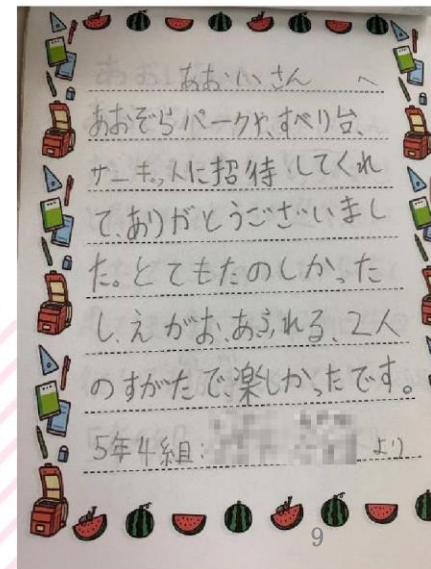 あおいさん へ
あおぞらパークや、すべり台、
サーキットに招待してくれ
て、ありがとうございまし
た。とてもたのしかった
し、えがお、あふれる、2人
のすがたで、楽しかったです。
5年4組: より
9